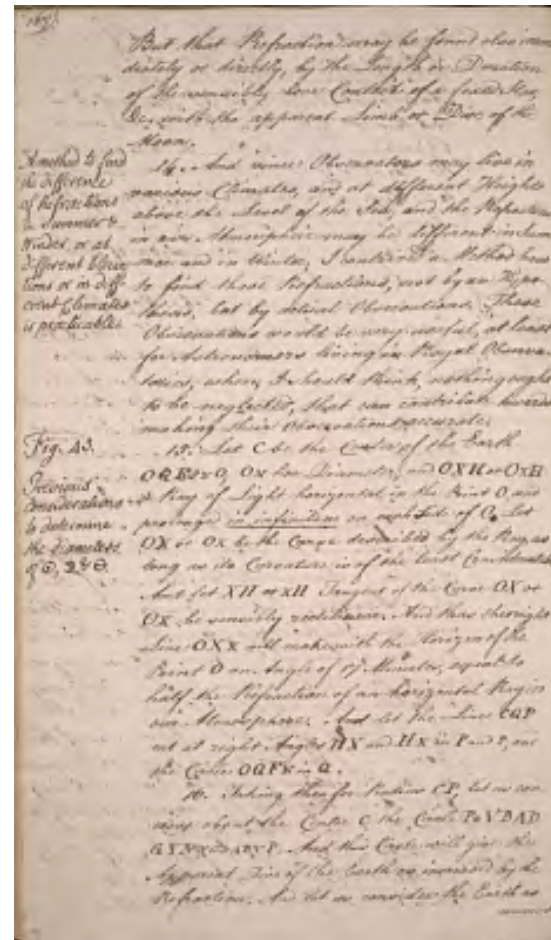 But that Refraction may be found also imme
diately or directly, by the Length or Duration
of the sensibly Contact of a fixed Star,
&c. with the apparent Limb or Disc of the
Moon.
A method to find
the difference
of Refractions
in Summer &
Winter or at
different Eleva
tions or in diff
erent Climates
is practicable.
14. And since Observators may live in
various Climates, and at different Heights
above the Level of the Sea, and the Refraction
in our Atmosphere may be different in Sum
mer and in Winter, I a Method how
to find those Refractions, not by an Hypo
thesis, but by actual Observations. These
Observations would be very useful, at least
for Astronomers living in Royal Observa
tories, where, I should think, nothing ought
to be neglected, that can contribute towards
making their Observations accurate.
Fig. 43.
Previous
Considerations
to determine
the diameters
of
15. Let C be the Center of the Earth
its Diameter, and OXH or OxH
a Ray of Light horizontal in the Point O and
prolonged in infinitum on each side of O. Let
OX or Ox be the Curve described by the Ray, as
long as its Curvature is of the least Consideration
And let XH or xH Tangent of the Curve OX or
Ox be sensibly rectilinear. And thus the right
Line OXx will make with the Horizon of the
Point O an Angle of 17 Minutes, equal to
half the Refraction of an horizontal Ray in
our Atmosphere. And let the Lines CQP
cut at right Angles HX and Hx in P and p, and
the Curve in Q.
16. Taking then for Radius CP, let us con
about the Center C the Circle
And this Circle will give the
Apparent Size of the Earth as increased by the
Refraction. And let us consider the Earth as